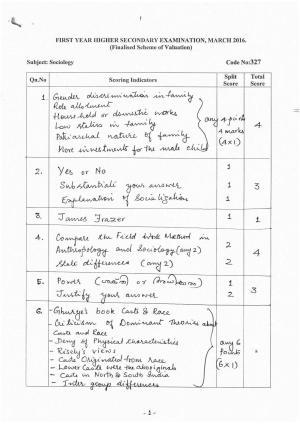 FIRST YEAR HIGHER SECONDARY EXAMINATION, MARCH 2016.
(Finalised Scheme of Valuation)
Subject: Sociology Code No:327
Qn.No Scoring Indicators Split Score Total Score
1. Gender discrimination in family
Role allotment
Household or domestic works
Low status in family
Patriarchal nature of family
More investments for the male child
any 4 points
4 marks
(4x1)
4
2. Yes or No 1
Substantiate your answer 1 3
Explanation of Socialization 1
3. James Frazer 1 1
4. Compare the Field Work Method in
Anthropology and Sociology (any 2) 2 4
State differences (any 2) 2
5. Power or 1 3
Justify your answer 2
6. - Ghurye's book Caste & Race
- Criticism of Dominant theories about
Caste and Race
- Deny of Physical characteristics
- Risely's views
- Caste Originated from race
- Lower Caste were the aboriginals
- Caste in North & South India
- Inter group differences
any 6
Points
(6x1)
- 1 -